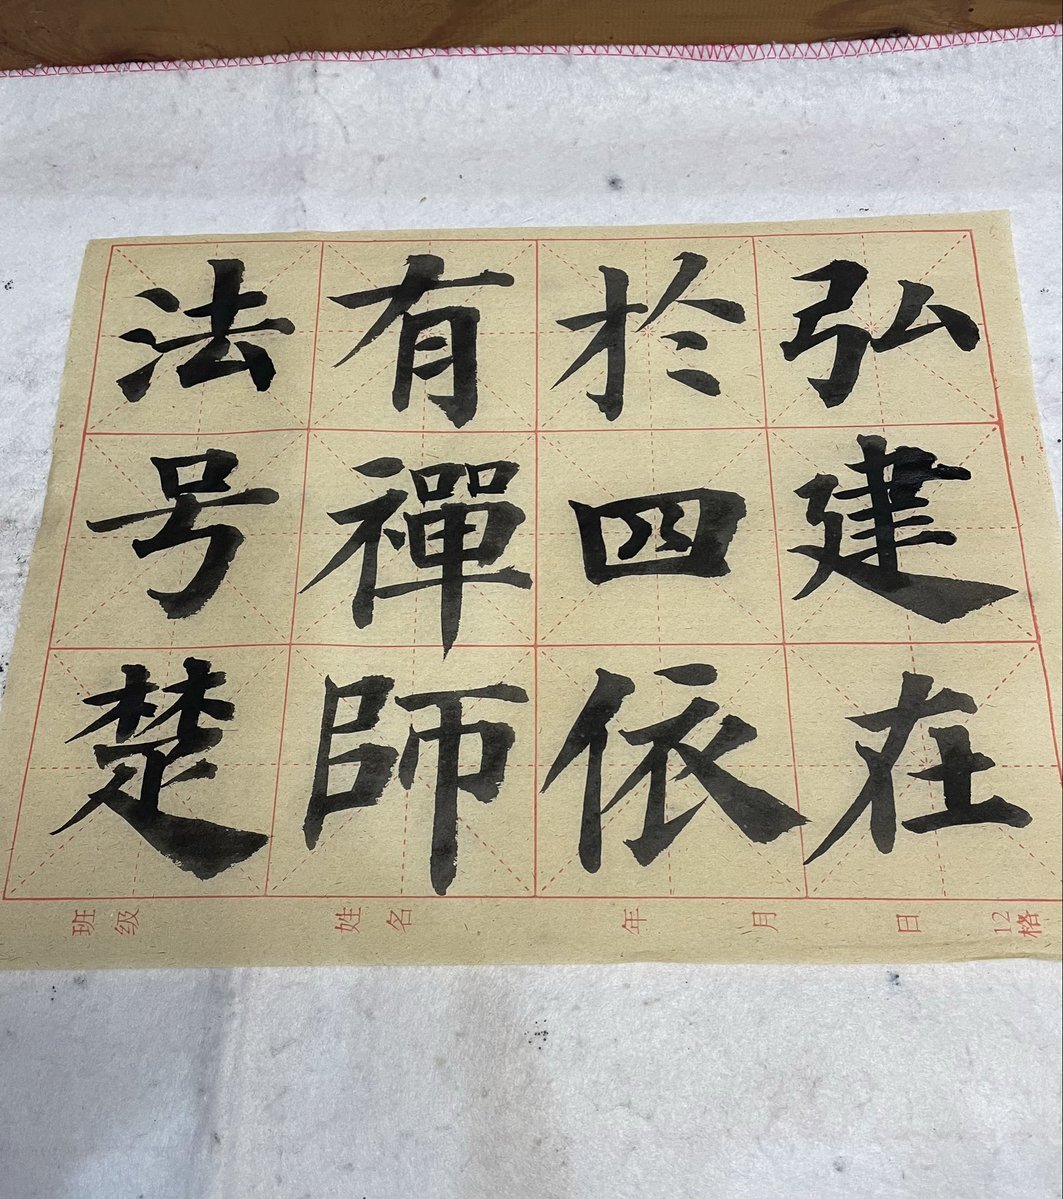 弘建在
於四依
有禪師
法号楚
班级 姓名 年 月 日 12格